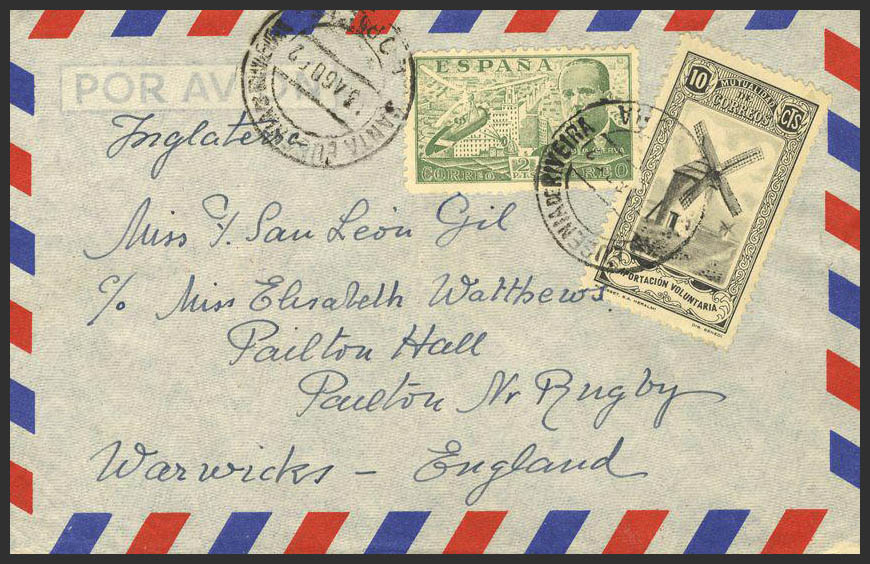 POR AVION
Inglate
Miss Y. San León Gil
c/o Miss Elisabeth Watthews
Pailton Hall
Pailton Nr Rugby
Warwicks – England
ESPAÑA
CORREO 2 PTS CORREO
10 MUTUALIDAD DE CORREOS CTS
APORTACIÓN VOLUNTARIA
AGO
SANTA
RIVEIRA